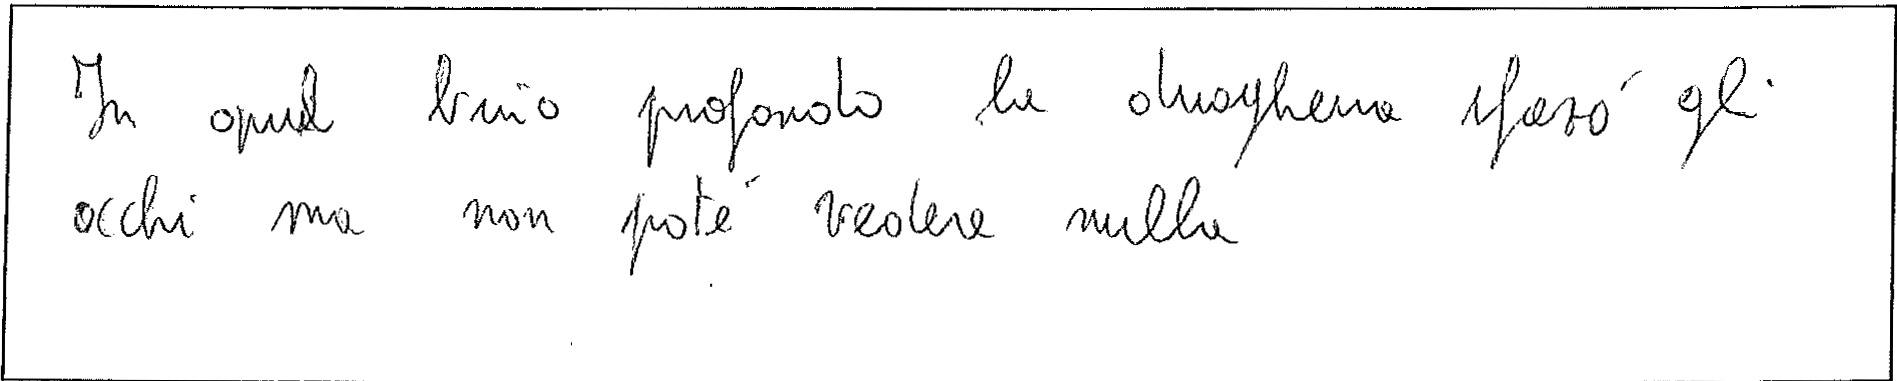 In quel buio profondo la draghessa sfasó gli
occhi ma non poté vedere nulla